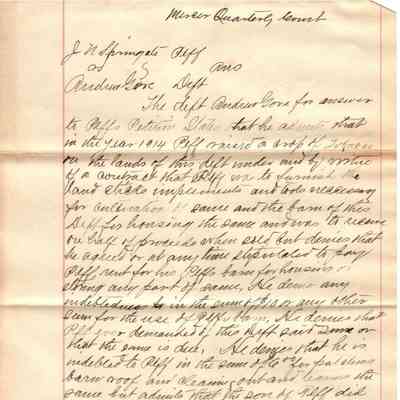 Mercer Quarterly Court
J N Springate Plff
vs } Ans
Andrew Gore Deft
The deft Andrew Gore for answer
to Plffs Petition States that he admits that
in the year 1914 Plff raised a crop of Tobacco
on the lands of this deft under and by virtue
of a contract that Plff was to furnish the
land sticks implements and tools necessary
for cultivation of same and the barn of this
Deft for housing the same and was to receive
one half of proceeds when sold but denies that
he agreed or at any time stipulated to pay
Plff rent for his Plffs barn for housing or
any part of same, He denies any
indebtedness to in the sum of or any other
sum for the use of Plffs barn, He denies that
Plff ever demanded of this Deff said sum or
that the same is due, He denies that he is
indebted to Plff in the sum of for patching
barn roof and cleaning out and
same but admits that the son of Plff did